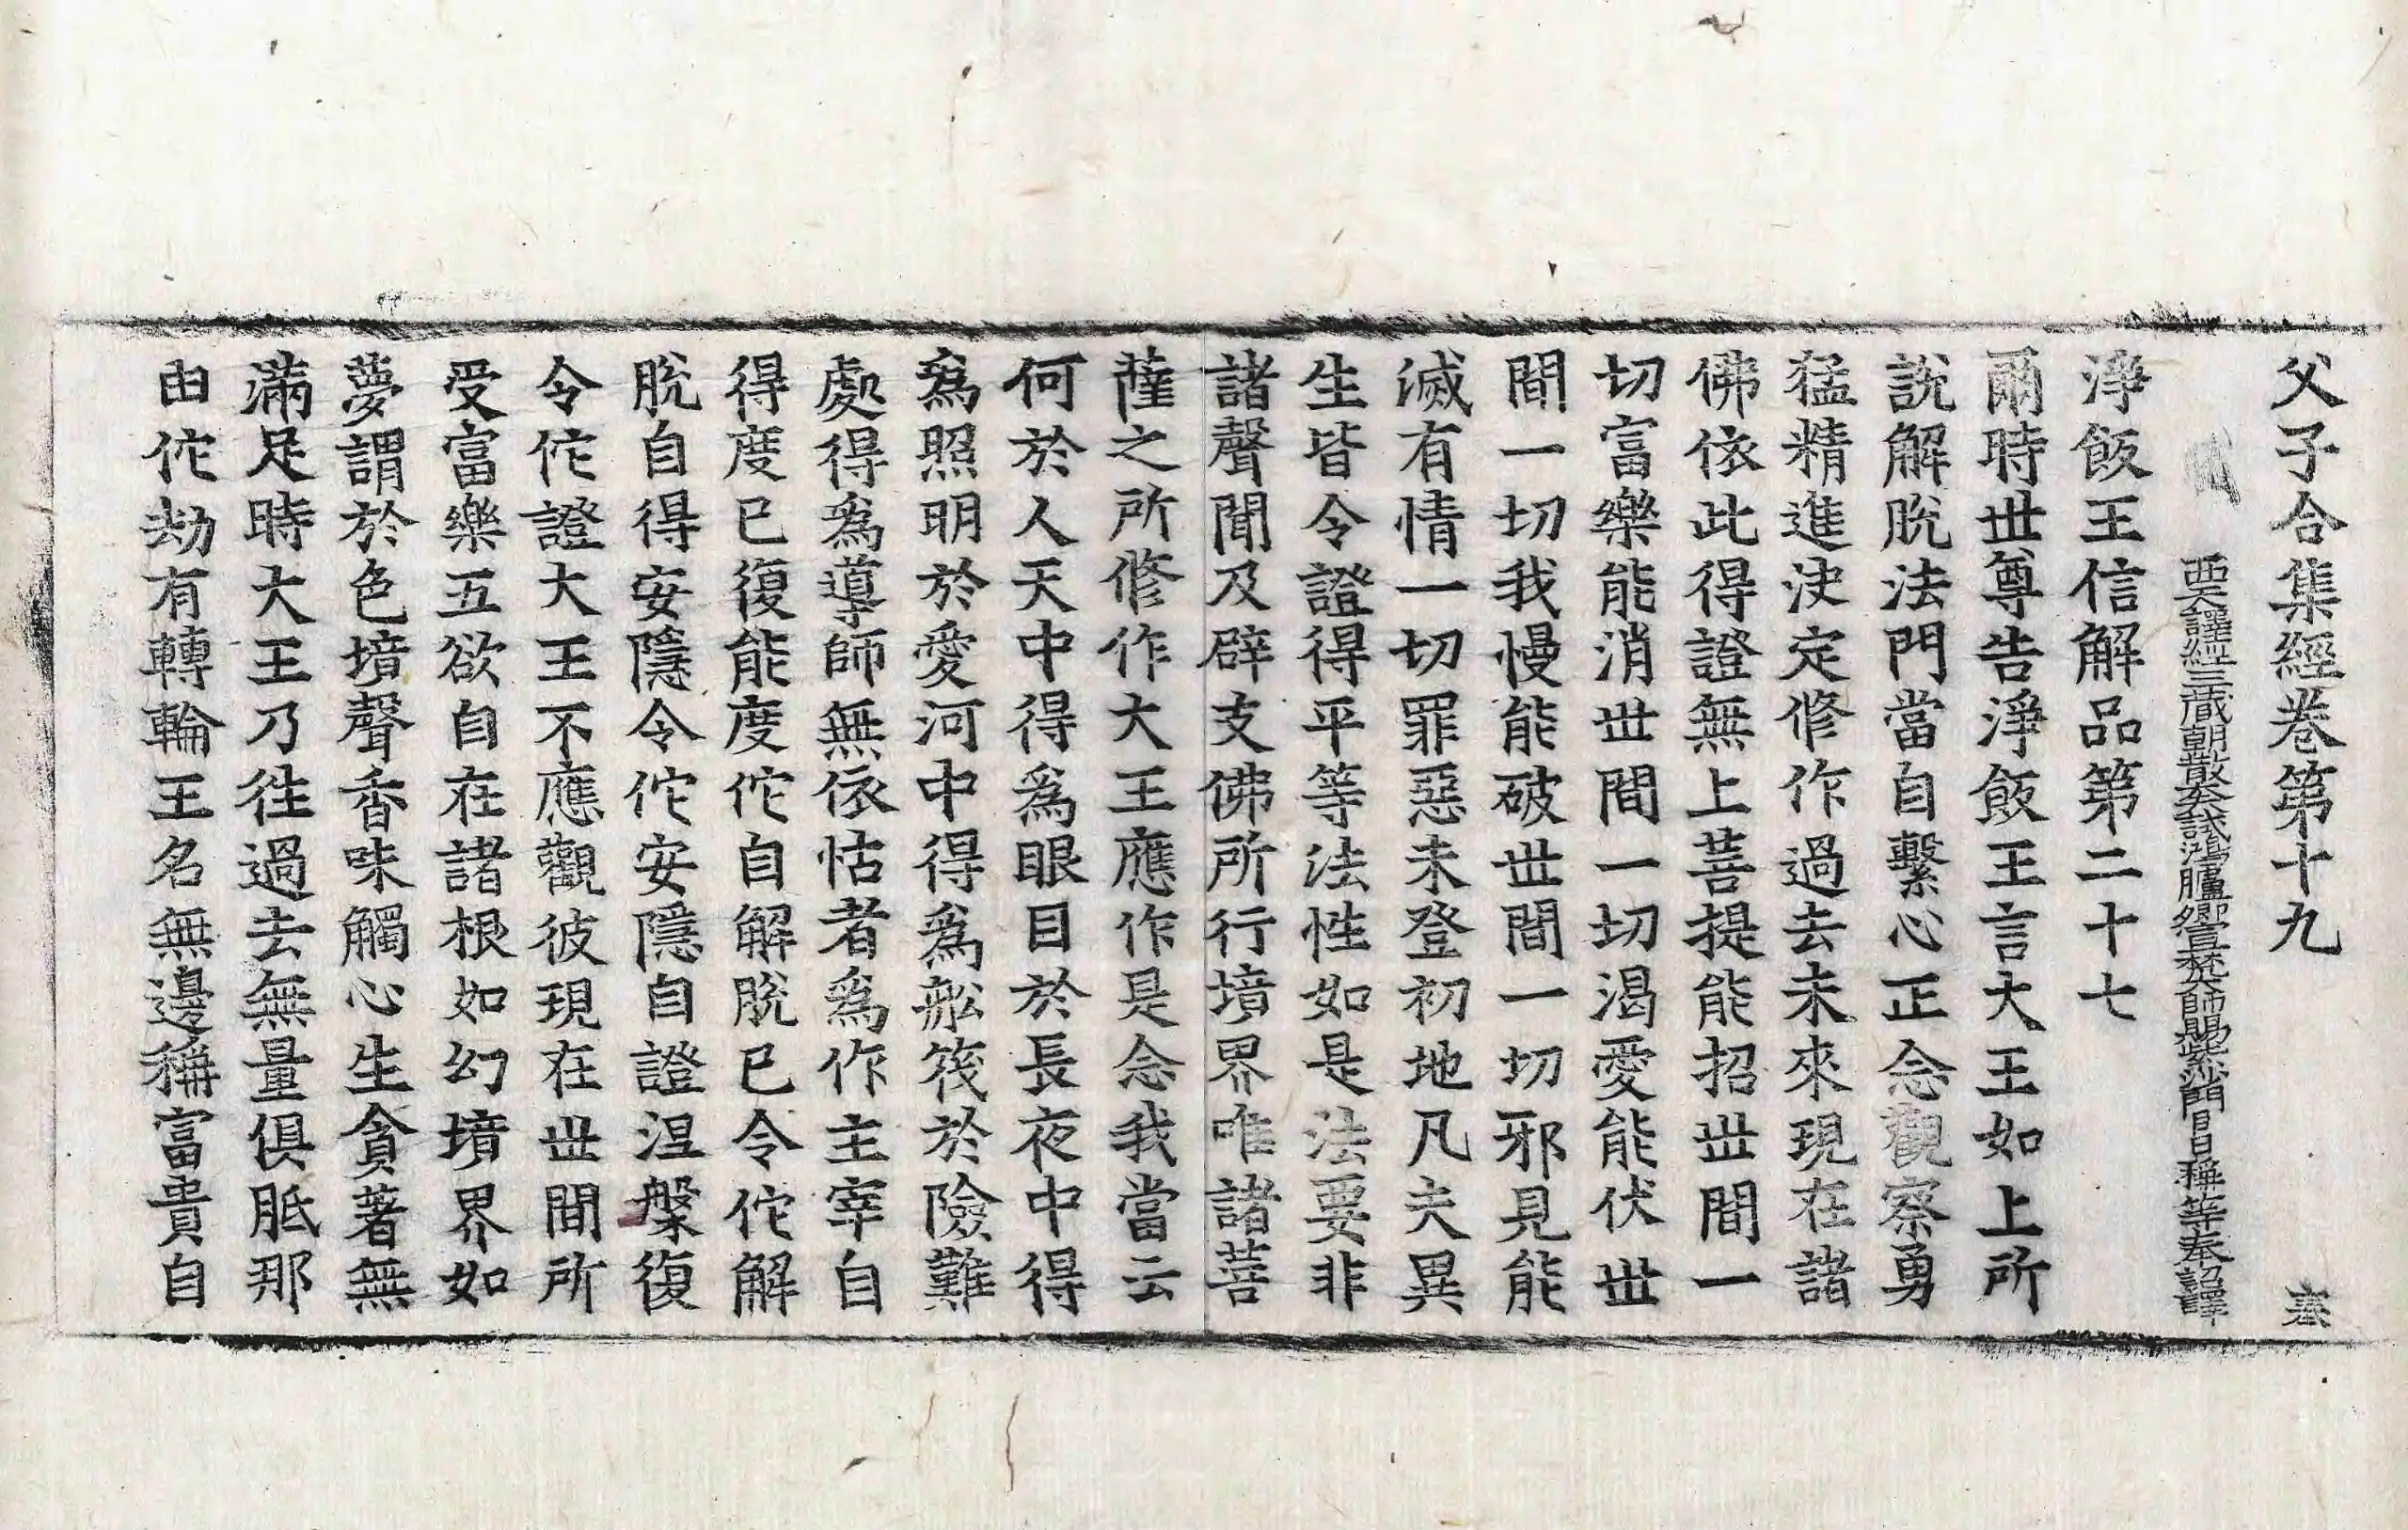 父子合集經卷第十九
西天譯經三藏朝散大夫試鴻臚卿宣梵大師賜紫沙門臣日稱等奉詔譯
淨飯王信解品第二十七
爾時世尊告淨飯王言大王如上所
說解脫法門當自繫心正念觀察勇
猛精進決定修作過去未來現在諸
佛依此得證無上菩提能招世間一
切富樂能消世間一切渴愛能伏世
間一切我慢能破世間一切邪見能
滅有情一切罪惡未登初地凡夫異
生皆令證得平等法性如是法要非
諸聲聞及辟支佛所行境界唯諸菩
薩之所修作大王應作是念我當云
何於人天中得爲眼目於長夜中得
爲照明於愛河中得爲船筏於險難
處得爲導師無依怙者爲作主宰自
得度已復能度佗自解脫已令佗解
脫自得安隱令佗安隱自證涅槃復
令佗證大王不應觀彼現在世間所
受富樂五欲自在諸根如幻境界如
夢謂於色境聲香味觸心生貪著無
滿足時大王乃往過去無量俱胝那
由佗劫有轉輪王名無邊稱富貴自